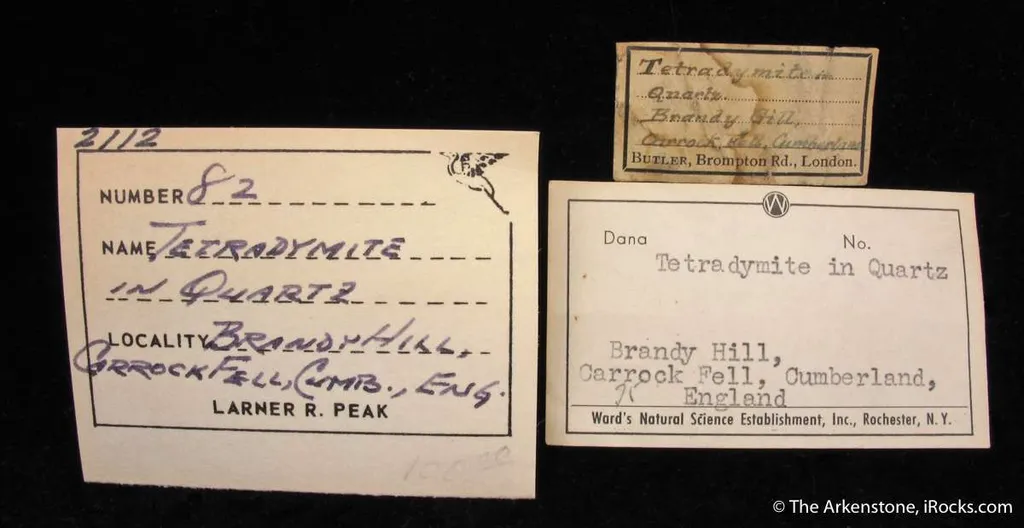 2112
NUMBER 82
NAME TETRADYMITE
IN QUARTZ
LOCALITY BRANDY HILL,
CARROCK FELL, CUMB., ENG.
LARNER R. PEAK
Tetradymite in
Quartz
Brandy Gill,
Carrock Fells, Cumberland
BUTLER, Brompton Rd., London.
W
Dana No.
Tetradymite in Quartz
Brandy Hill,
Carrock Fell, Cumberland,
England
Ward's Natural Science Establishment, Inc., Rochester, N. Y.
© The Arkenstone, iRocks.com